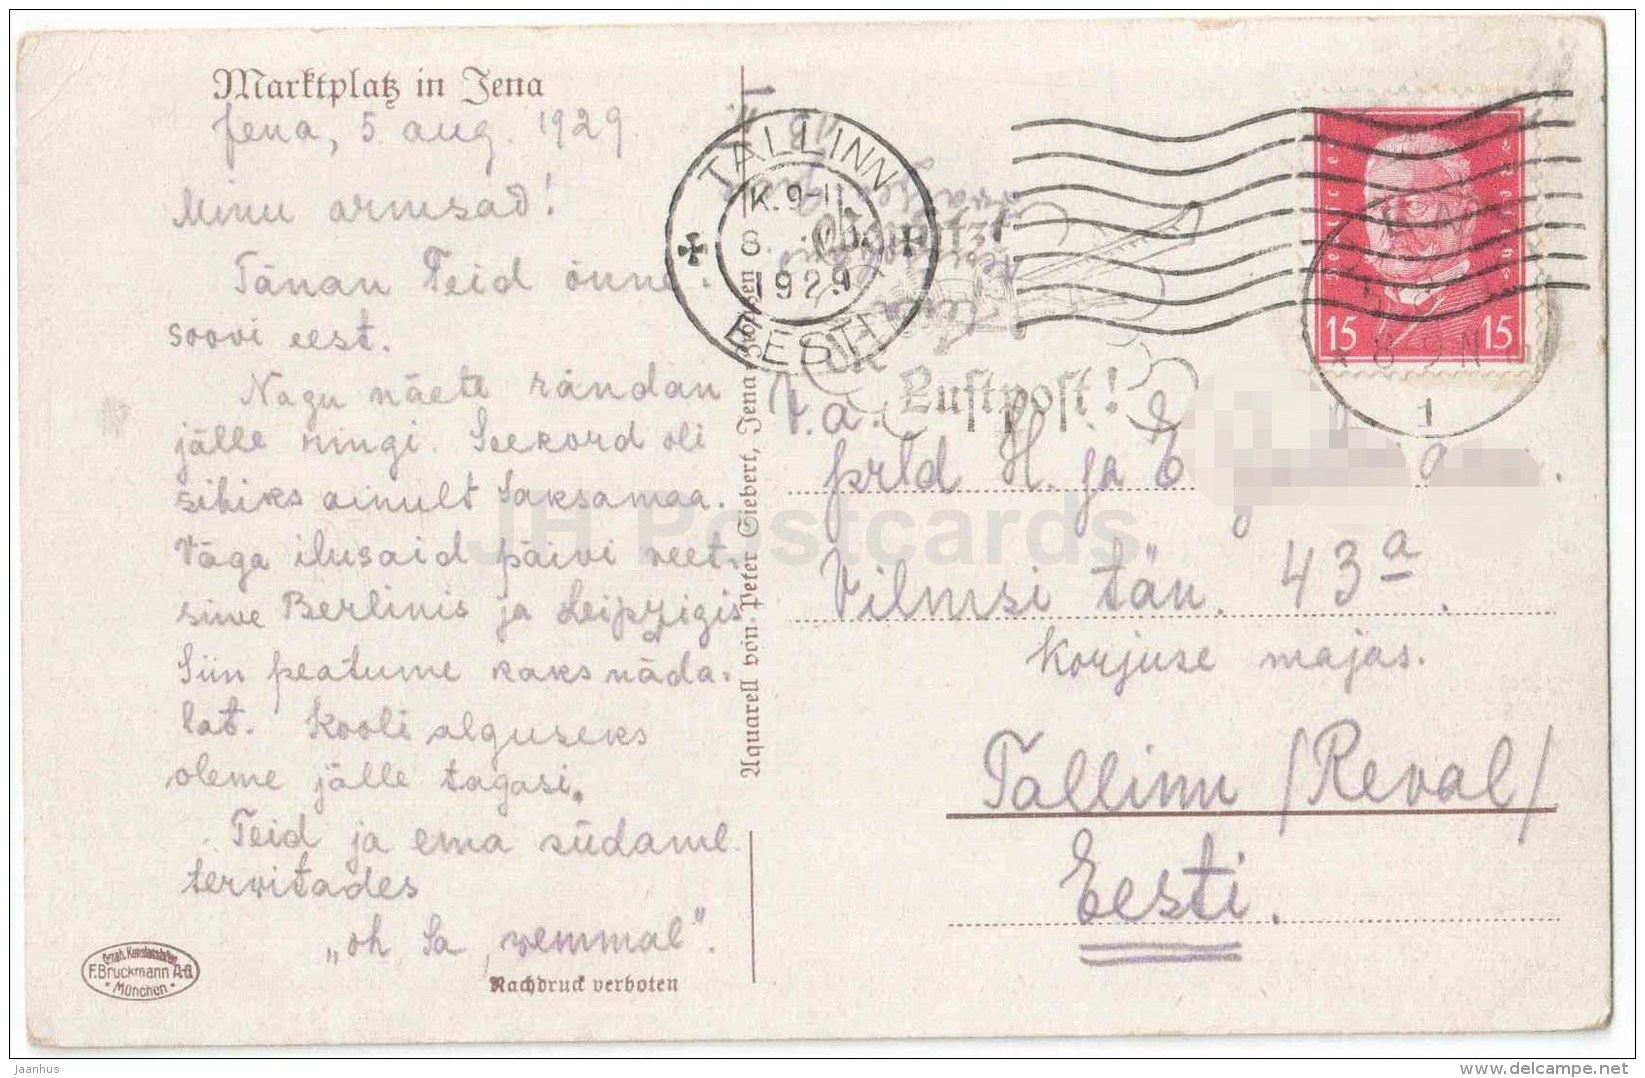 Marktplatz in Jena
Jena, 5. aug. 1929.
Minu armsad!
Tänan Teid õnne-
soovi eest.
Nagu näete rändan
jälle ringi. Seekord oli
sihiks ainult Saksamaa.
Väga ilusaid päivi veet-
sime Berlinis ja Leipzigis
Siin peatume kaks näda-
lat. Kooli alguseks
oleme jälle tagasi.
Teid ja ema südaml.
tervitades
„oh Sa, vemmal".
Nachdruck verboten
F. Bruckmann A-G
München
Aquarell von Peter Siebert, Jena
TALLINN
K. 9-1
8. 1929
EESTI
Luftpost!
Deutsches Reich
15 15
8-9 N
1
V.a.
prld H. ja E
Vilmsi tän. 43a.
Korjuse majas.
Tallinn /Reval/
Eesti.
JH Postcards
jaanhus
delcampe.net